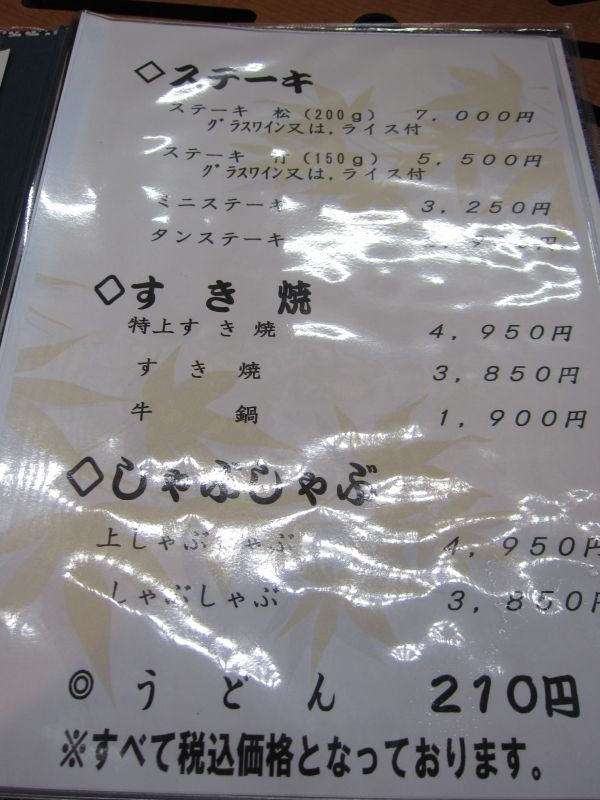 ◇ステーキ
ステーキ 松(200g) 7,000円
グラスワイン又は,ライス付
ステーキ 竹(150g) 5,500円
グラスワイン又は,ライス付
ミニステーキ 3,250円
タンステーキ 円
◇すき焼
特上すき焼 4,950円
すき焼 3,850円
牛鍋 1,900円
◇しゃぶしゃぶ
上しゃぶしゃぶ 4,950円
しゃぶしゃぶ 3,850円
◎うどん 210円
※すべて税込価格となっております。